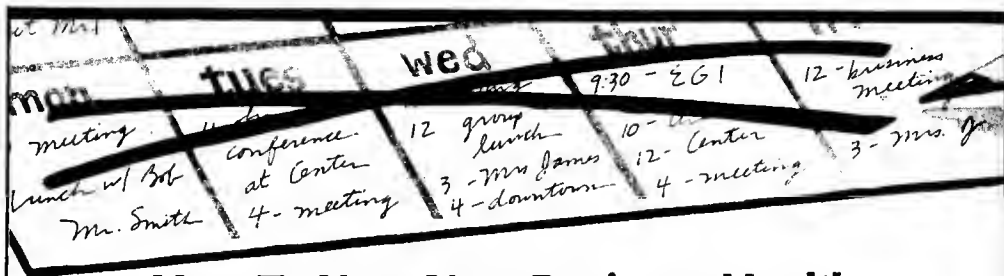 mon
meeting
Lunch w/ Bob
Mr. Smith
tues
conference
at Center
4 - meeting
wed
12 group
lunch
3 - Mrs James
4 - downtown
thur
9:30 - EGI
10 -
12 - Center
4 - meeting
12 - business
meeting
3 - Mrs.